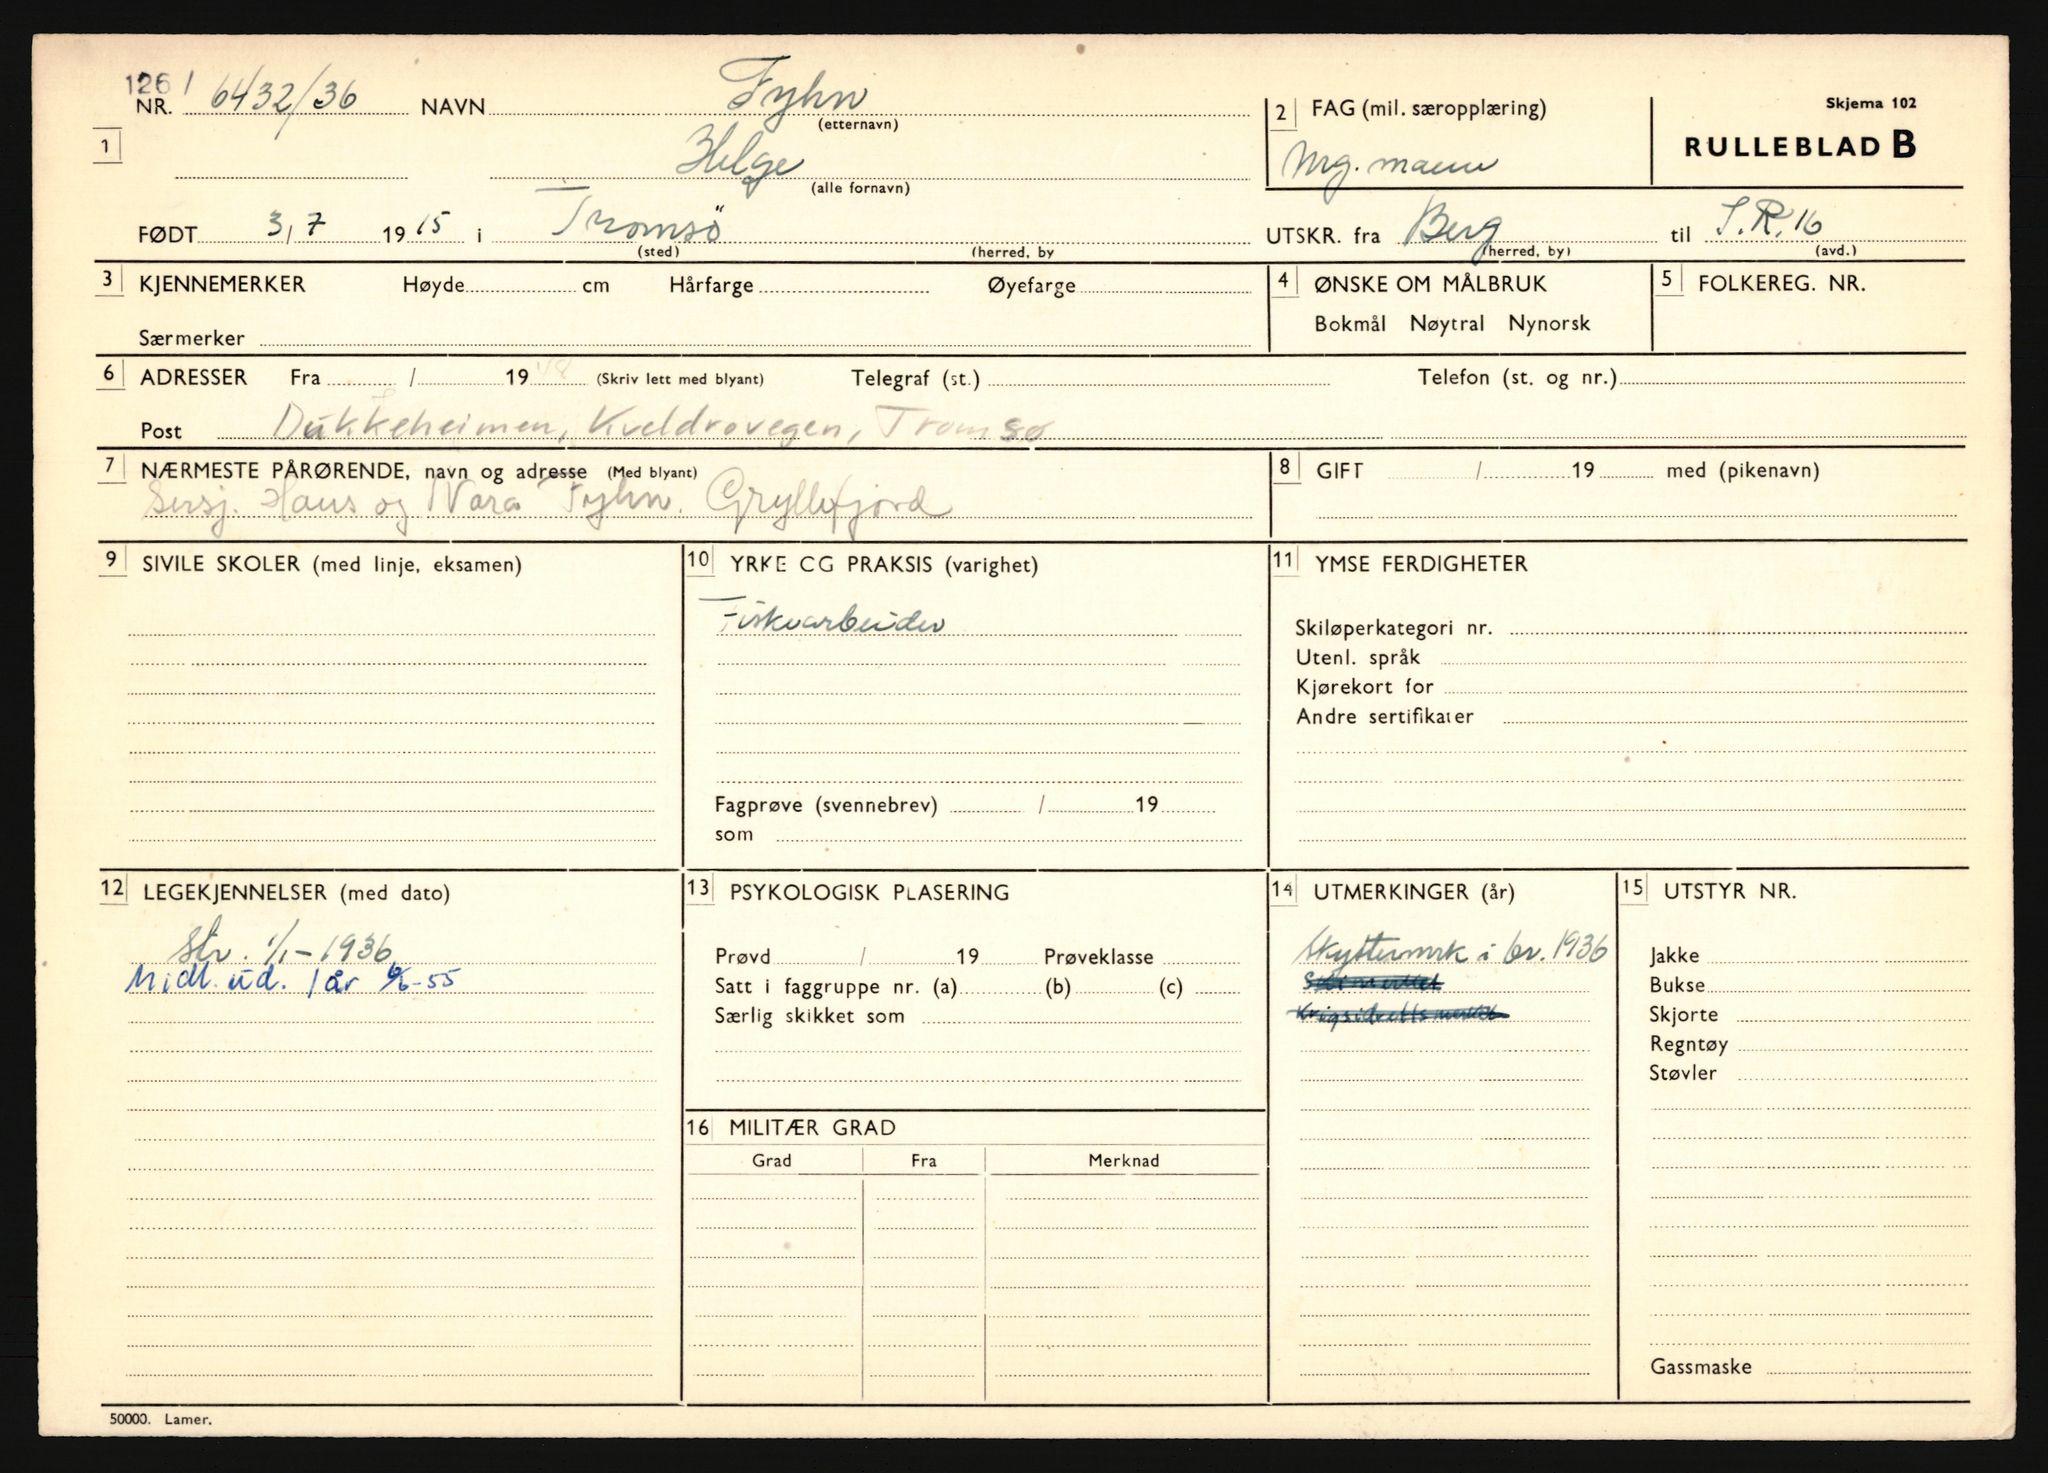 126 /
NR. 6432/36 NAVN Fyhn
(etternavn)
2 FAG (mil. særopplæring)
Skjema 102
RULLEBLAD B
1
Helge
(alle fornavn)
Mrg. mann
FØDT 3/7 1915 i Tromsö
(sted) (herred, by
UTSKR. fra Berg til I.R. 16
(herred, by) (avd.)
3 KJENNEMERKER Høyde cm Hårfarge Øyefarge
Særmerker
4 ØNSKE OM MÅLBRUK
Bokmål Nøytral Nynorsk
5 FOLKEREG. NR.
6 ADRESSER Fra / 1948 (Skriv lett med blyant) Telegraf (st.) Telefon (st. og nr.)
Post Dukkeheimen, Kveldrovegen, Tromsø
7 NÆRMESTE PÅRØRENDE, navn og adresse (Med blyant)
Hans og Nora Fyhn. Gryllefjord
8 GIFT / 19 med (pikenavn)
9 SIVILE SKOLER (med linje, eksamen)
10 YRKE OG PRAKSIS (varighet)
Fiskearbeider
Fagprøve (svennebrev) / 19
som
11 YMSE FERDIGHETER
Skiløperkategori nr.
Utenl. språk
Kjørekort for
Andre sertifikater
12 LEGEKJENNELSER (med dato)
Str. 1/1-1936
Midl. ud. 1 år 6/6-55
13 PSYKOLOGISK PLASERING
Prøvd / 19 Prøveklasse
Satt i faggruppe nr. (a) (b) (c)
Særlig skikket som
14 UTMERKINGER (år)
Skyttermrk i br. 1936
Skimerket
Krigsidrettsmerket
15 UTSTYR NR.
Jakke
Bukse
Skjorte
Regntøy
Støvler
Gassmaske
16 MILITÆR GRAD
Grad Fra Merknad
50000. Lamer.